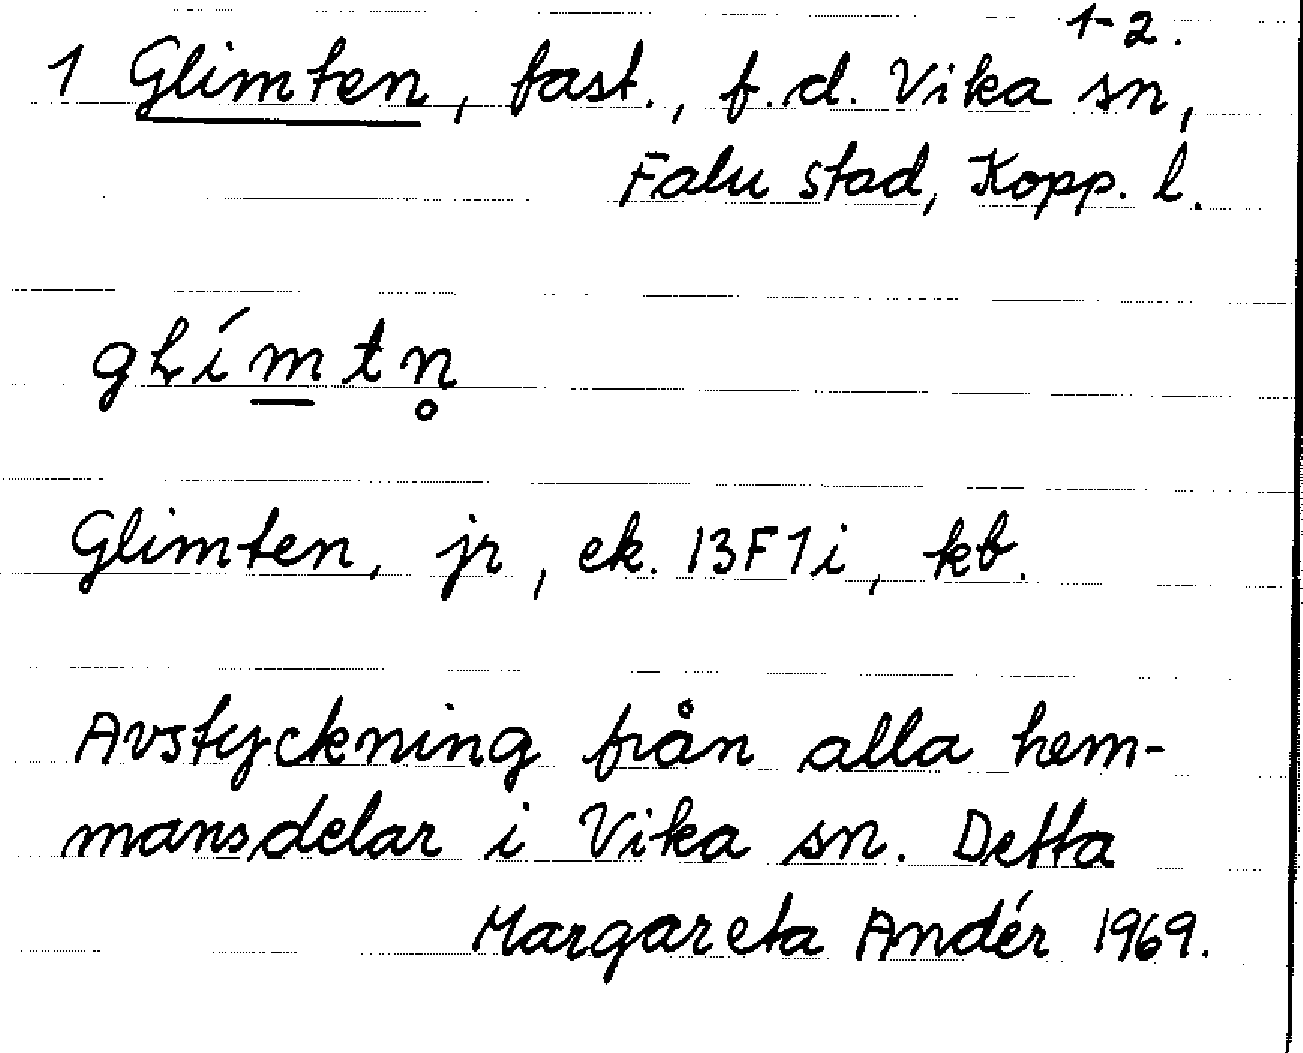 1-2.
1 Glimten, fast., f.d. Vika sn,
Falu stad, Kopp. l.
Glimten, jr, ek. 13F1i, kb.
Avstyckning från alla hem-
mansdelar i Vika sn. Detta
Margareta Andér 1969.